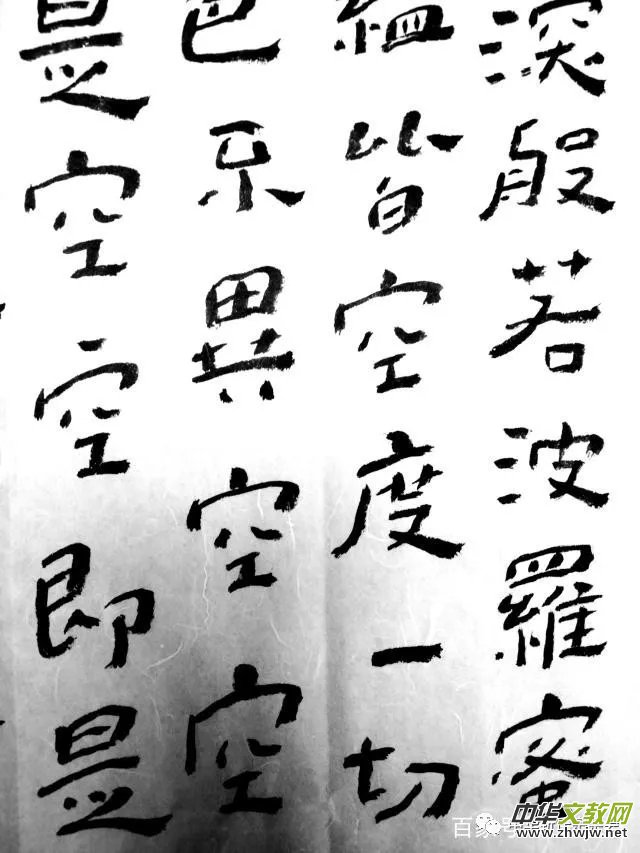 深般若波羅蜜
蘊皆空度一切
色不異空空
是空空即是
中华文教网
www.zhwjw.net